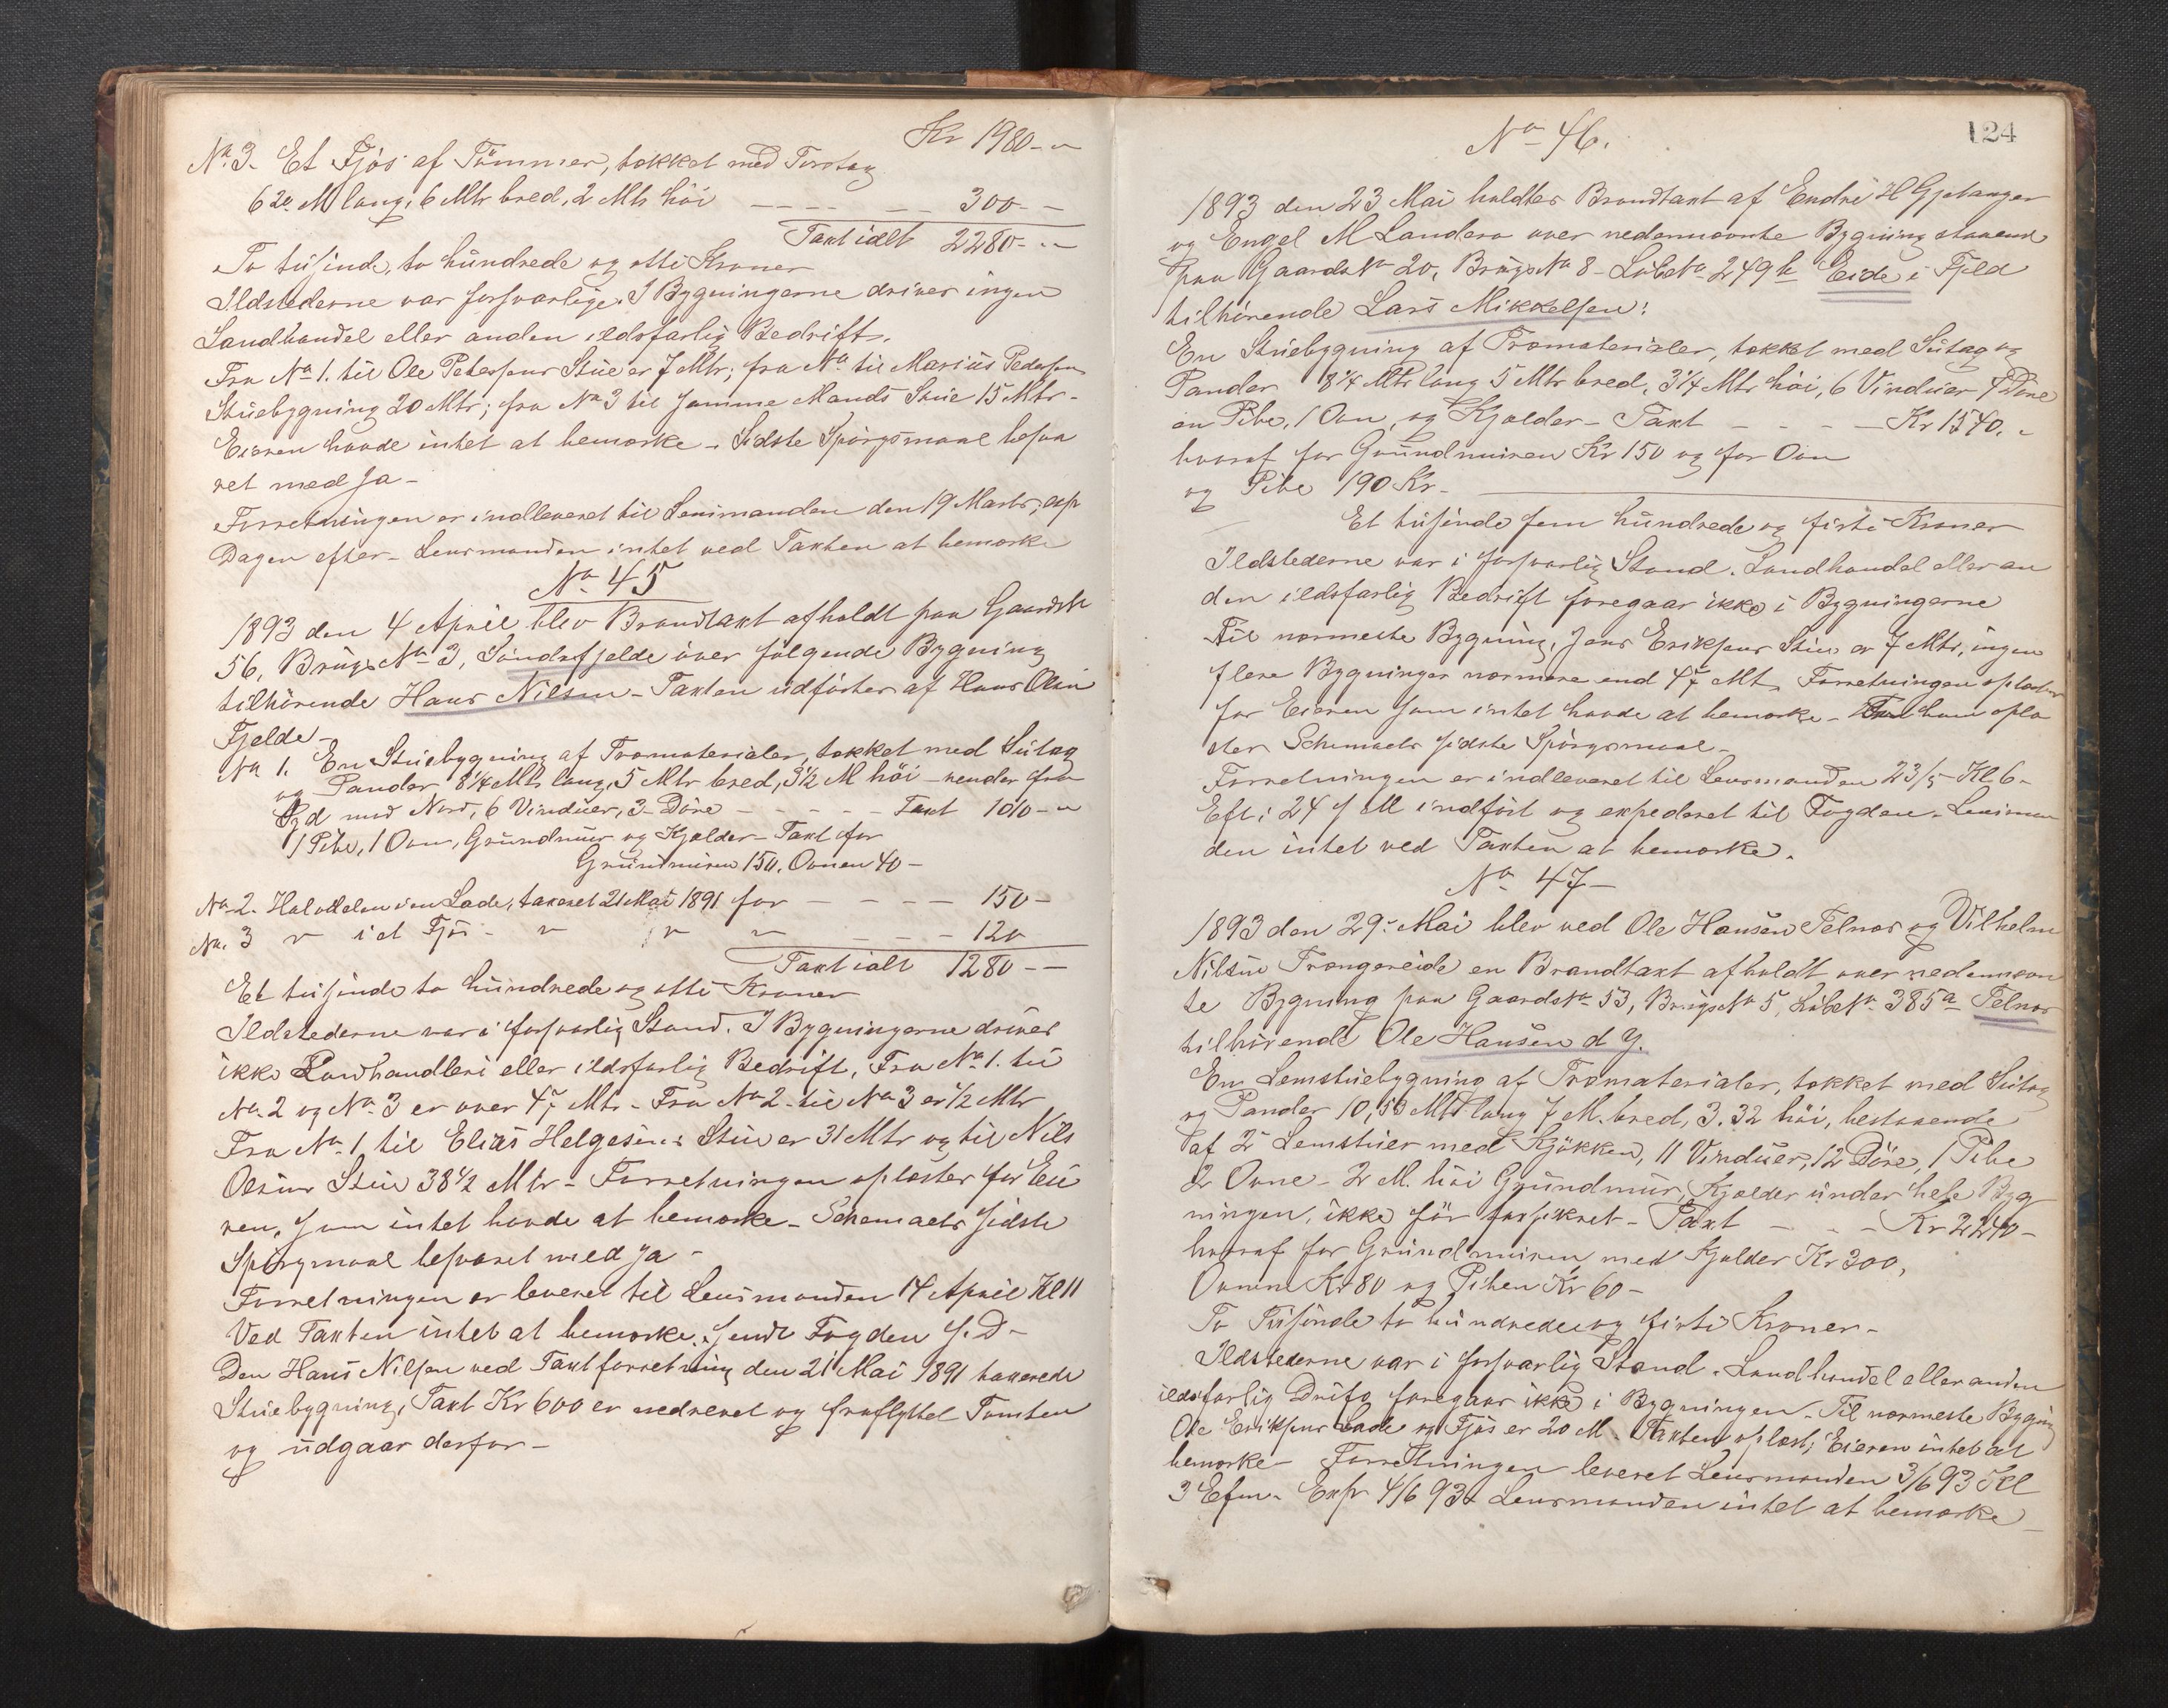 Kr 1980 - "
No. 3. Et Fjös af Tömmer, tækket med Torvtag
6 20 M lang, 6 Mtr bred, 2 Mtr höi - - - - - - 300 - -
Taxt ialt 2280 - "
To tusinde, to hundrede og otti Kroner
Ildstederne var forsvarlige. I Bygningerne drives ingen
Landhandel eller anden ildsfarlig Bedrift.
Fra No 1. til Ole Petersens Stue er 7 Mtr; fra No til Marius Pedersens
Stuebygning 20 Mtr; fra No 3 til samme Mands Stue 15 Mtr -
Eieren havde intet at bemærke - Sidste Spörgsmaal besva
ret med Ja -
Forretningen er indleveret til Lensmanden den 19 Marts, exp
Dagen efter - Lensmanden intet ved Taxten at bemærke
No. 45
1893 den 4 April blev Brandtaxt afholdt paa Gaards No
56, Brugs No 3, Söndrefjelde over fölgende Bygning
tilhörende Hans Nilsen - Taxten udförtes af Hans Olsen
Fjelde -
No 1. En Stuebygning af Træmaterialer, tækket med Sutag
og Pander 8 1/4 Mtr lang, 5 Mtr bred, 3 1/2 M höi - vender fra
Syd mod Nord, 6 Vinduer, 3 Döre - - - - Taxt 1010 - "
1 Pibe, 1 Ovn, Grundmur og Kjelder - Taxt for
Grundmuren 150. Ovnen 40 -
No 2. Halvdelen i en Lade, taxeret 21 Mai 1891 for - - - - 150 -
No. 3 " i et Fjös - " " " - - - 120
Taxt ialt 1280 - -
Et tusinde to hundrede og otti Kroner
Ildstederne var i forsvarlig Stand. I Bygningerne drives
ikke Landhandleri eller ildsfarlig Bedrift. Fra No 1. til
No 2 og No 3 er over 47 Mtr - Fra No 2 til No 3 er 1/2 Mtr
Fra No 1 til Elias Helgesens Stue er 31 Mtr og til Nils
Olsens Stue 38 1/2 Mtr - Forretningen oplæstes for Eie
ren, som intet havde at bemærke - Schemaets sidste
Spörgmaal besvaret med Ja -
Forretningen er leveret til Lensmanden 14 April Kl 11
Ved Taxten intet at bemærke. Sendt Fogden S. D -
Den Hans Nilsen ved Taxtforretning den 21 Mai 1891 taxerede
Stuebygning, Taxt Kr 600 er nedrevet og fraflyttet Tomten
og udgaar derfor -
124
No 46.
1893 den 23 Mai holdtes Brandtaxt af Endre H Gjetanger
og Engel M Landero over nedennævnte Bygning staaende
paa Gaards No 20, Brugs No 8 - Löbe No 249 b Eide i Fjeld
tilhörende Lars Mikkelsen:
En Stuebygning af Træmaterialer, tækket med Sutag og
Pander 8 1/4 Mtr lang 5 Mtr bred, 3 1/4 Mtr höi, 6 Vinduer 4 Döre
en Pibe, 1 Ovn, og Kjelder - Taxt - - - - Kr 1540. "
hvoraf for Grundmuren Kr 150 og for Ovn
og Pibe 190 Kr -
Et tusinde fem hundrede og firti Kroner
Ildstederne var i forsvarlig Stand. Landhandel eller an
den ildsfarlig Bedrift foregaar ikke i Bygningerne
Til nærmeste Bygning, Jens Eriksens Stue er 7 Mtr, ingen
flere Bygninger nærmere end 47 Mt. Forretningen oplæstes
for Eieren som intet havde at bemærke - han oplæ
stes Schemaets sidste Spörgsmaal -
Forretningen er indleveret til Lensmanden 23/5 Kl 6 -
Eft; 24 s M indfört og expederet til Fogden. Lensman
den intet ved Taxten at bemærke.
No 47 -
1893 den 29 Mai blev ved Ole Hansen Telnes og Vilhelm
Nilsen Trængereide en Brandtaxt afholdt over nedennævn
te Bygning paa Gaards No 53, Brugs No 5, Löbe No 385 a Telnes
tilhörende Ole Hansen d y.
En Lemstuebygning af Træmaterialer, tækket med Sutag
og Pander 10,50 Mtr lang 7 M. bred, 3.32 höi, bestaaende
af 2 Lemstuer med Kjökken, 11 Vinduer, 12 Döre, 1 Pibe
2 Ovne - 2 M. höi Grundmur, Kjælder under hele Byg
ningen, ikke för forsikret - Taxt - - - Kr 2240 -
hvoraf for Grundmuren med Kjelder Kr 300,
Ovnene Kr 80 og Piben Kr 60 -
To Tusinde to hundrede og firti Kroner -
Ildstederne var i forsvarlig Stand. Landhandel eller anden
ildsfarlig Drift foregaar ikke i Bygningen. Til nærmeste Bygning
Ole Eriksens Lade og Fjös er 20 M. Taxten oplæst; Eieren intet at
bemærke - Forretningen leveret Lensmanden 3/6 93 Kl
3 Efm. Exp 4/6 93. Lensmanden intet at bemærke -